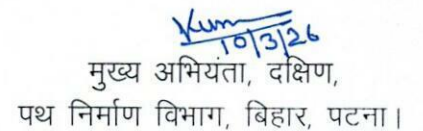 10/3/26
मुख्य अभियंता, दक्षिण,
पथ निर्माण विभाग, बिहार, पटना।